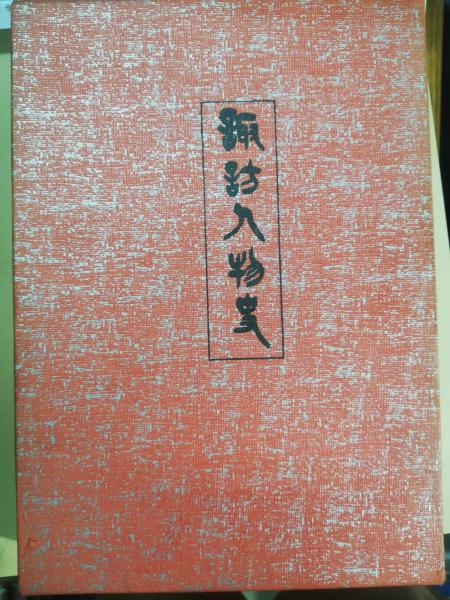 諏訪人物史